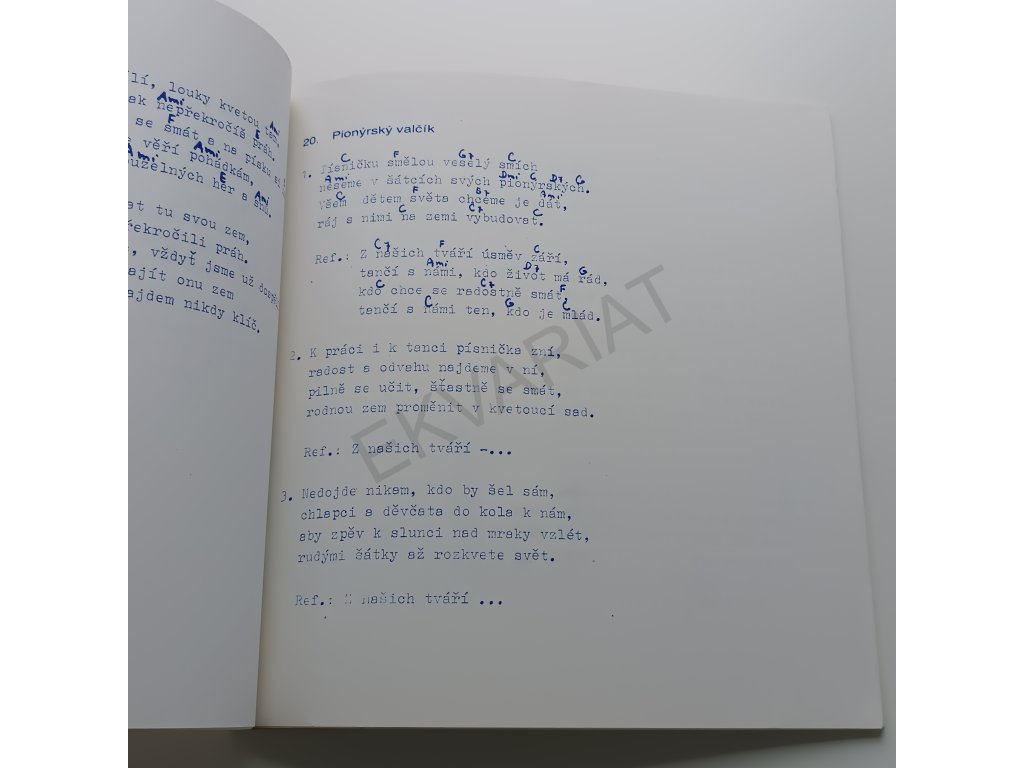 lí, louky kvetou ten,
Ami Ami
ak nepřekročíš práh.
F E
se smát a na písku si
Ami
věří pohádkám,
Ami
ouzelných her a snů.
E Ami
at tu svou zem,
řekročili práh.
, vždyť jsme už dospě
ajít onu zem
ajdem nikdy klíč.
20. Pionýrský valčík
C F G7 C
1. Písničku smělou veselý smích
Ami Dmi C D7 G
neseme v šátcích svých pionýrských.
C F E7 Ami
Všem dětem světa chceme je dát,
C G7 C
ráj s nimi na zemi vybudovat.
C7 F C
Ref.: Z našich tváří úsměv září,
Ami D7 G
tančí s námi, kdo život má rád,
C C7 F
kdo chce se radostně smát,
C G C
tančí s námi ten, kdo je mlád.
2. K práci i k tanci písnička zní,
radost a odvahu najdeme v ní,
pilně se učit, šťastně se smát,
rodnou zem proměnit v kvetoucí sad.
Ref.: Z našich tváří -...
3. Nedojde nikam, kdo by šel sám,
chlapci a děvčata do kola k nám,
aby zpěv k slunci nad mraky vzlét,
rudými šátky až rozkvete svět.
Ref.: Z našich tváří ...
EKVARIAT